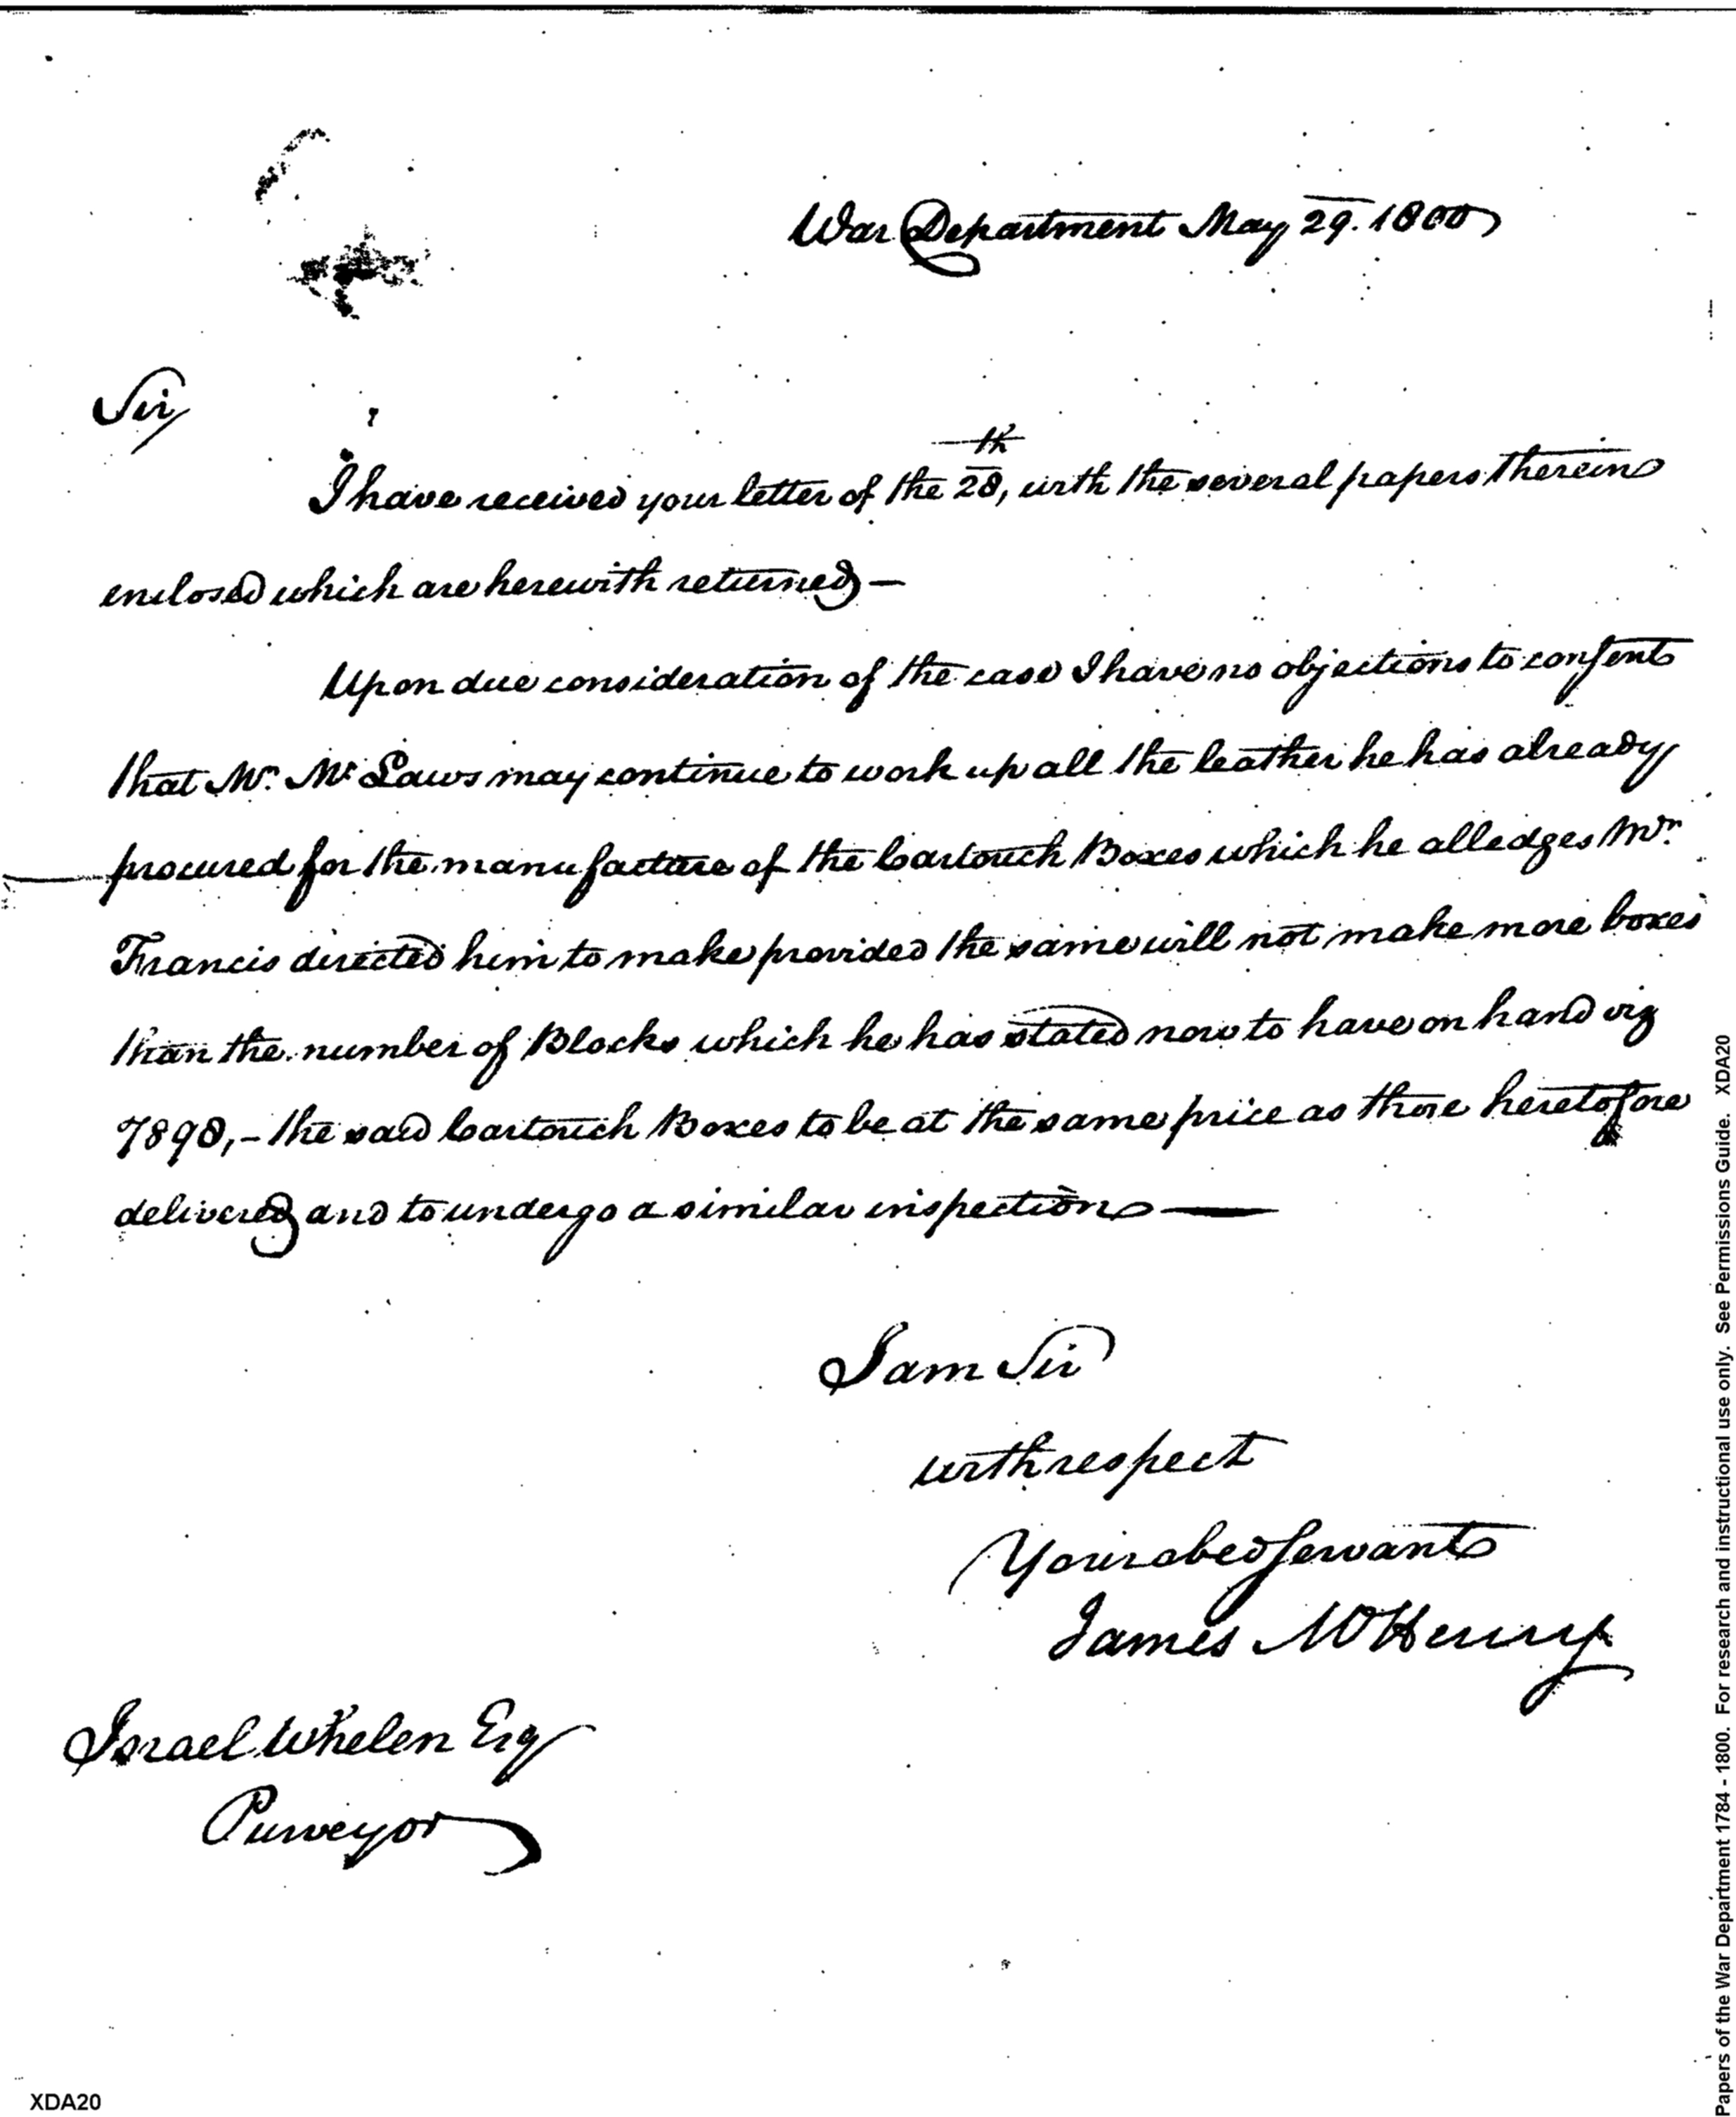 War Department May 29. 1800
Sir,
I have received your letter of the 28th, with the several papers therein
enclosed which are herewith returned —
Upon due consideration of the case I have no objections to consent
that Mr. Mc Laws may continue to work up all the leather he has already
procured for the manufacture of the Cartouch Boxes which he alledges Mr.
Francis directed him to make provided the same will not make more boxes
than the number of Blocks which he has stated now to have on hand viz
7898, - the said Cartouch Boxes to be at the same price as those heretofore
delivered and to undergo a similar inspection —
I am Sir
with respect
Your obed Servant
James McHenry
Israel Whelen Esq
Purveyor
XDA20
Papers of the War Department 1784 - 1800. For research and instructional use only. See Permissions Guide. XDA20